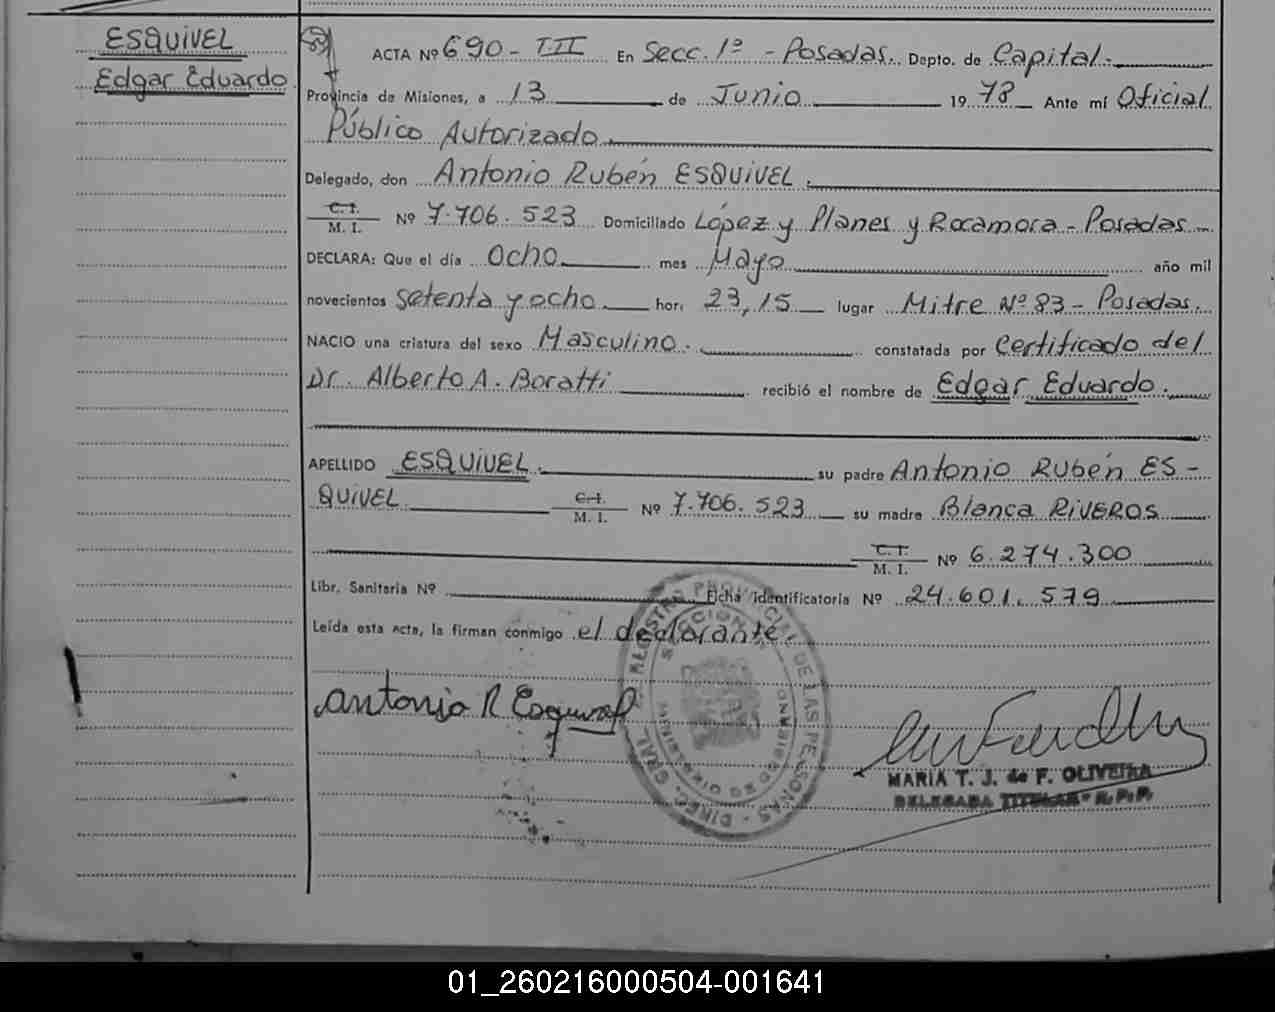 ESQUIVEL
Edgar Eduardo
ACTA Nº 690 - III En Secc. 1º - Posadas. Depto. de Capital.
Provincia de Misiones, a 13 de Junio 1978 Ante mí Oficial
Público Autorizado
Delegado, don Antonio Rubén ESQUIVEL.
C. I.
M. I. Nº 7.706.523 Domiciliado López y Planes y Rocamora - Posadas
DECLARA: Que el día Ocho mes Mayo año mil
novecientos setenta y ocho hor. 23,15 lugar Mitre Nº 83 - Posadas.
NACIO una criatura del sexo Masculino. constatada por Certificado del
Dr. Alberto A. Boratti recibió el nombre de Edgar Eduardo.
APELLIDO ESQUIVEL. su padre Antonio Rubén ES-
QUIVEL C. I. M. I. Nº 7.706.523 su madre Blanca RIVEROS
C. I. M. I. Nº 6.274.300
Libr. Sanitaria Nº Ficha identificatoria Nº 24.601.579
Leída esta acta, la firman conmigo el declarante.
Antonio R Esquivel
REGISTRO PROVINCIAL DE LAS PERSONAS - DIREC. GRAL.
MARIA T. J. de F. OLIVEIRA
DELEGADA TITULAR R.P.P.
01_260216000504-001641